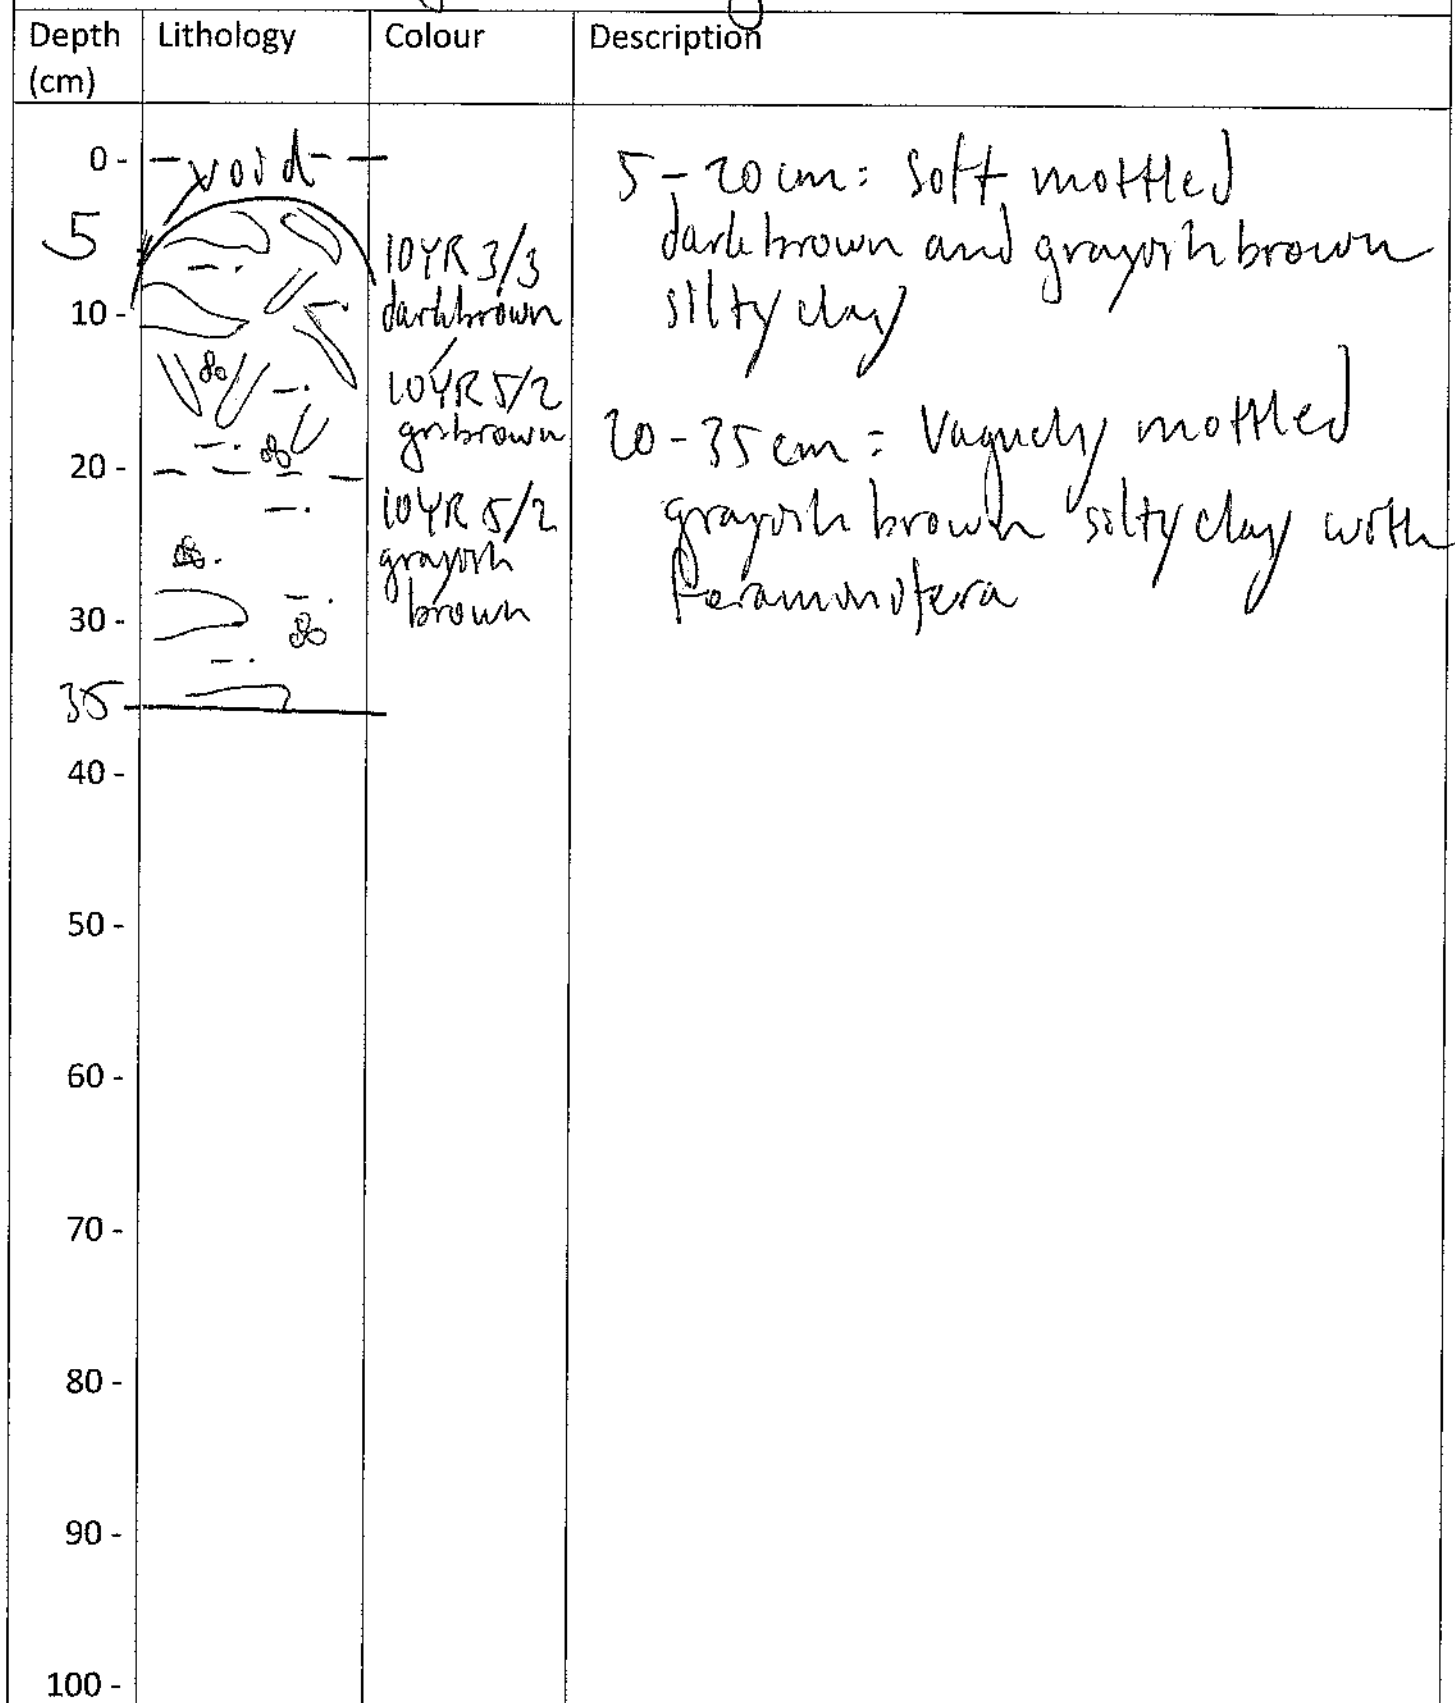 Depth Lithology Colour Description
(cm)
0 - void
5
10 -
20 -
30 -
35
40 -
50 -
60 -
70 -
80 -
90 -
100 -
10YR 3/3
dark brown
10YR 5/2
gr. brown
10YR 5/2
grayish
brown
5 - 20 cm: Soft mottled
dark brown and grayish brown
silty clay
20 - 35 cm = Vaguely mottled
grayish brown silty clay with
foraminifera